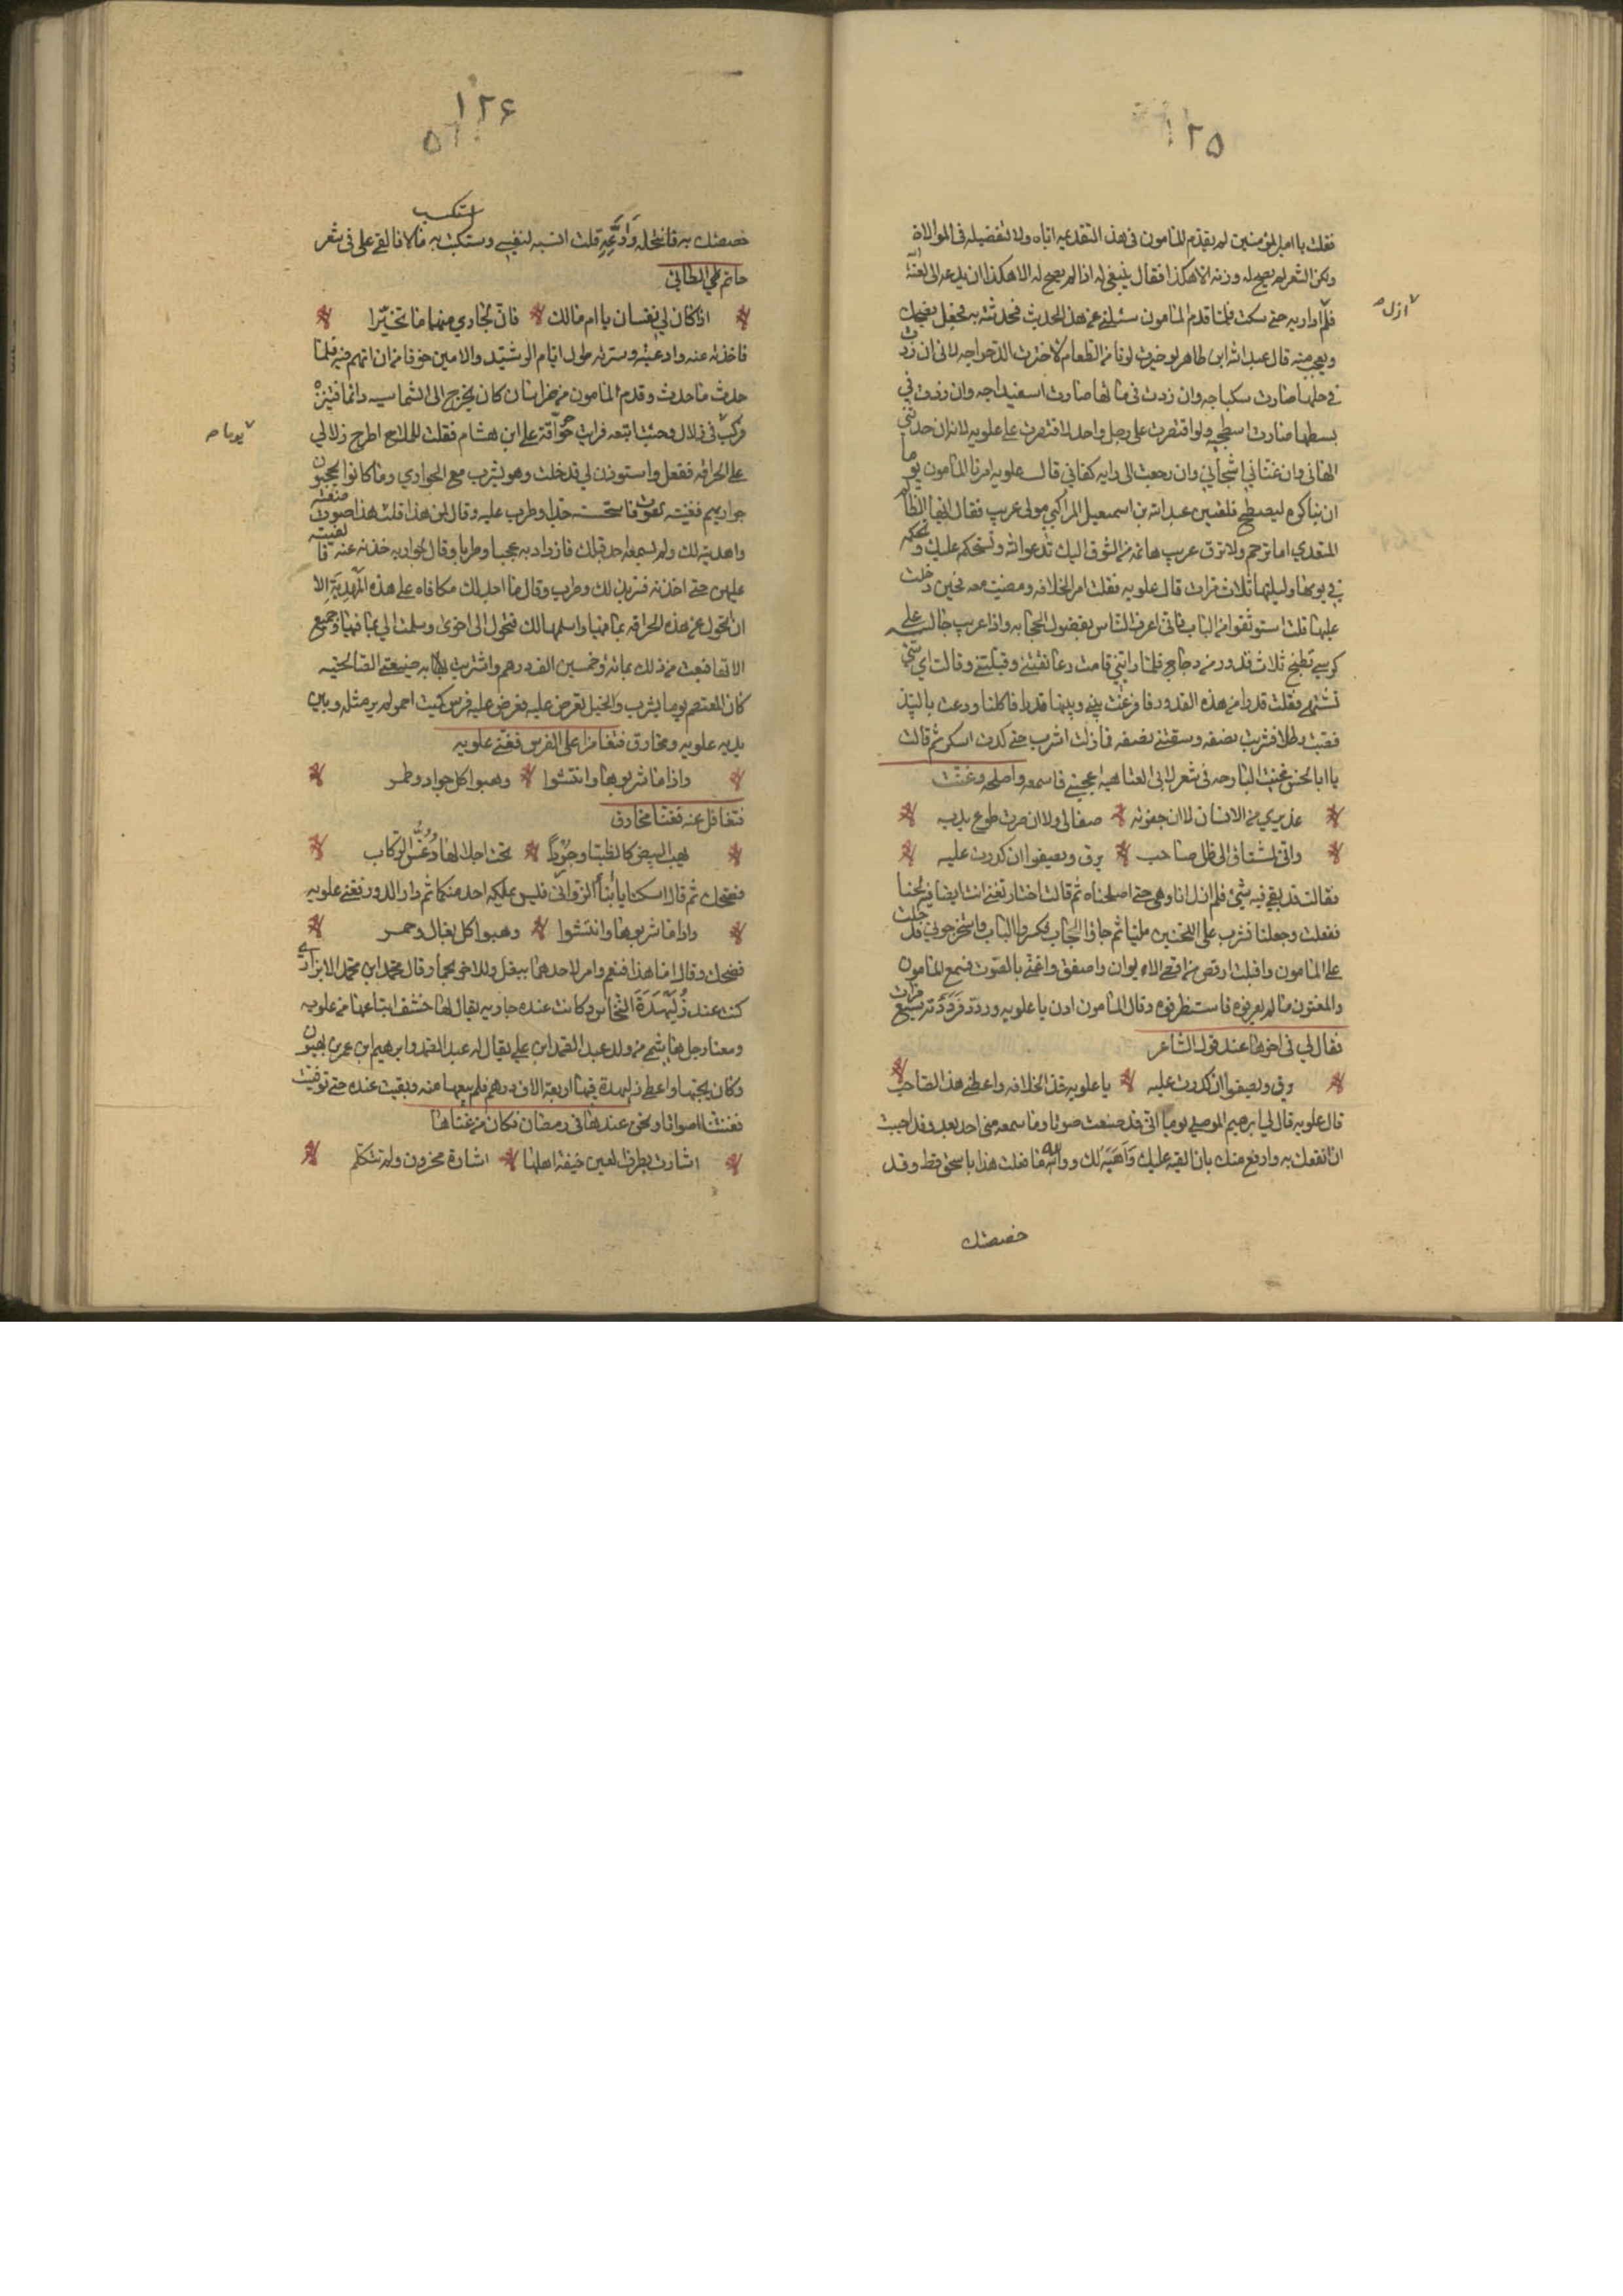 ١٢٥
فقلت يا امير المؤمنين لم يقدم المامون في هذا التقديمه اياه ولا لتفضيله في الموالاة
ولكن الشعر لم يصح له وزنه الا هكذا فقال ينبغي له اذا لم يصح له الا هكذا ان يدعه الى لعنة الله
فلم اداريه حتى سكت فلما قدم المامون سئلني عن هذا الحديث فحدثته به فجعل يضحك
ازل
ويعجب منه قال عبد الله ابن طاهر لو خيرت لونا من الطعام لاخترت الدجاجه لاني ان زدت
في خلها صارت سكباجه وان زدت في مائها صارت اسفيداجه وان زدت في
بسطها صارت مطجنه ولو اقتصرت على رجل واحد لاقتصرت على علويه لانه ان حدثني
الهاني وان غناني اشجاني وان رجعت الى رايه كفاني قال علويه امرنا المامون يوما
ان نباكره ليصطبح فلقيني عبد الله بن اسمعيل المراكبي مولى عريب فقال ايها الظالم
المتعدي اما ترحم ولا ترق عريب هائمه من الشوق اليك تدعو الله وتستحكمه عليك وتحلم
بك في يومها وليلتها ثلاث مرات قال علويه فقلت ام الخلافه ومضيت معه فحين دخلت
عليها قلت استوثقوا من الباب فاني اعرف الناس بفضول الحجابه واذا عريب جالسه على
كرسي تطبخ ثلاث قدور من دجاج فلما راتني قامت وعانقتني وقبلتني وقالت اي شيء
تشتهي فقلت قدرا من هذه القدور فافرغت بيني وبينها قدرا فاكلنا ودعت بالنبيذ
فصبت رطلا فشرب نصفه وسقتني نصفه فما زلت اشرب حتى كدت اسكر ثم قالت
يا ابا الحسن غنيت البارحه في شعر لابي العتاهيه اعجبني فاسمعه واصلحه وغنت
عذيري من الانسان لا ان جفوته * صفا لي ولا ان صرت طوع يديه
واني لمشتاق الى ظل صاحب * يرق ويصفوا ان كدرت عليه
فقالت قد بقي فيه شيء فلم ازل انا وهي حتى اصلحناه ثم قالت اختار تغني انت ايضا فيه لحنا
ففعلت وجعلنا نشرب على اللحنين مليا ثم جاؤا الحجاب فكسروا الباب واستخرجوني فدخلت
على المامون واقبلت ارقص من اقصى الايوان واصفق واغني بالصوت فسمع المامون
والمغنون ما لم يعرفوه فاستظرفوه وقال المامون ادن يا علويه وردد فرددته سبع مرات
فقال لي في اخرها عند قول الشاعر
يرق ويصفوا ان كدرت عليه * يا علويه خذ الخلافه واعطني هذا الصاحب
قال علويه قال لي ابرهيم الموصلي يوما اني قد صنعت صوتا وما سمعه مني احد بعد وقد احببت
ان انفعك به وارفع منك بان القيه عليك واهبه لك ووالله ما فعلت هذا باسحق قط وقد
خصصتك
١٢۶
خصصتك به فانتحله وادعه قلت انسبه لنفسي وستكسب به مالا فالقى علي في شعر
استكسب
حاتم طي الطائي
اذا كان لي نفسان يا ام مالك * فان لجاري منهما ما تخيرا
فاخذته عنه وادعيته وسترته طول ايام الرشيد والامين خوفا من ان اتهم فيه فلما
حدث ما حدث وقدم المامون من خراسان كان يخرج الى الشماسيه دائما فيتنزه
فركبت في زلال وجئت اتبعه فرايت حراقة علي ابن هشام فقلت للملاح اطرح زلالي
يوما
على الحراقه ففعل واستوذن لي فدخلت وهو يشرب مع الجواري وما كانوا يحجبون
جواريهم فغنيته بصوت فاستحسنه جدا وطرب عليه وقال لمن هذا قلت هذا صوت صنعته
واهديته لك ولم يسمعه احد قبلك فازداد به عجبا وطربا وقال لجواريه خذنه عنه فالقيته
عليهن حتى اخذنه فسر بذلك وطرب وقال ما اجد لك مكافاه على هذه الهدية الا
ان اتحول عن هذه الحراقه بما فيها واسلمها لك فتحول الى اخرى وسلمت الي بما فيها وجميع
الاتها فبعت من ذلك بمائة وخمسين الف درهم واشتريت بها ضيعتي الصالحيه
كان المعتصم يوما يشرب والخيل تعرض عليه فعرض عليه فرس كميت احمر لم ير مثله وبين
يديه علويه ومخارق فتغامزا على الفرس فغنى علويه
واذا ما شربوها وانتشوا * وهبوا كل جواد وطمر
فتغافل عنه فغنا مخارق
يهب البيض كالظبا وجردا * تحت اجلالها وعيس الركاب
فضحك ثم قال اسكتا يا ابنا الزواني فليس يملكه احد منكما ثم دار الدور فغنى علويه
واذا ما شربوها وانتشوا * وهبوا كل بغال وحمر
فضحك وقال اما هذا فنعم وامر لاحدهما ببغل وللاخر بحمار وقال محمد ابن محمد الابزاري
كنت عند زليهدة النخاس وكانت عنده جاريه يقال لها خشف ابتاعها من علويه
ومعنا رجل هاشمي من ولد عبد الصمد ابن علي يقال له عبد الصمد وابرهيم ابن عمر بن
وكان يحبها واعطى زليهدة فيها اربعة الاف درهم فلم يبعها منه وبقيت عنده حتى توفيت
فغنتنا اصواتا ونحن عندها في رمضان فكان من غناها
اشارت بطرف العين خيفة اهلها * اشارة محزون ولم تتكلم